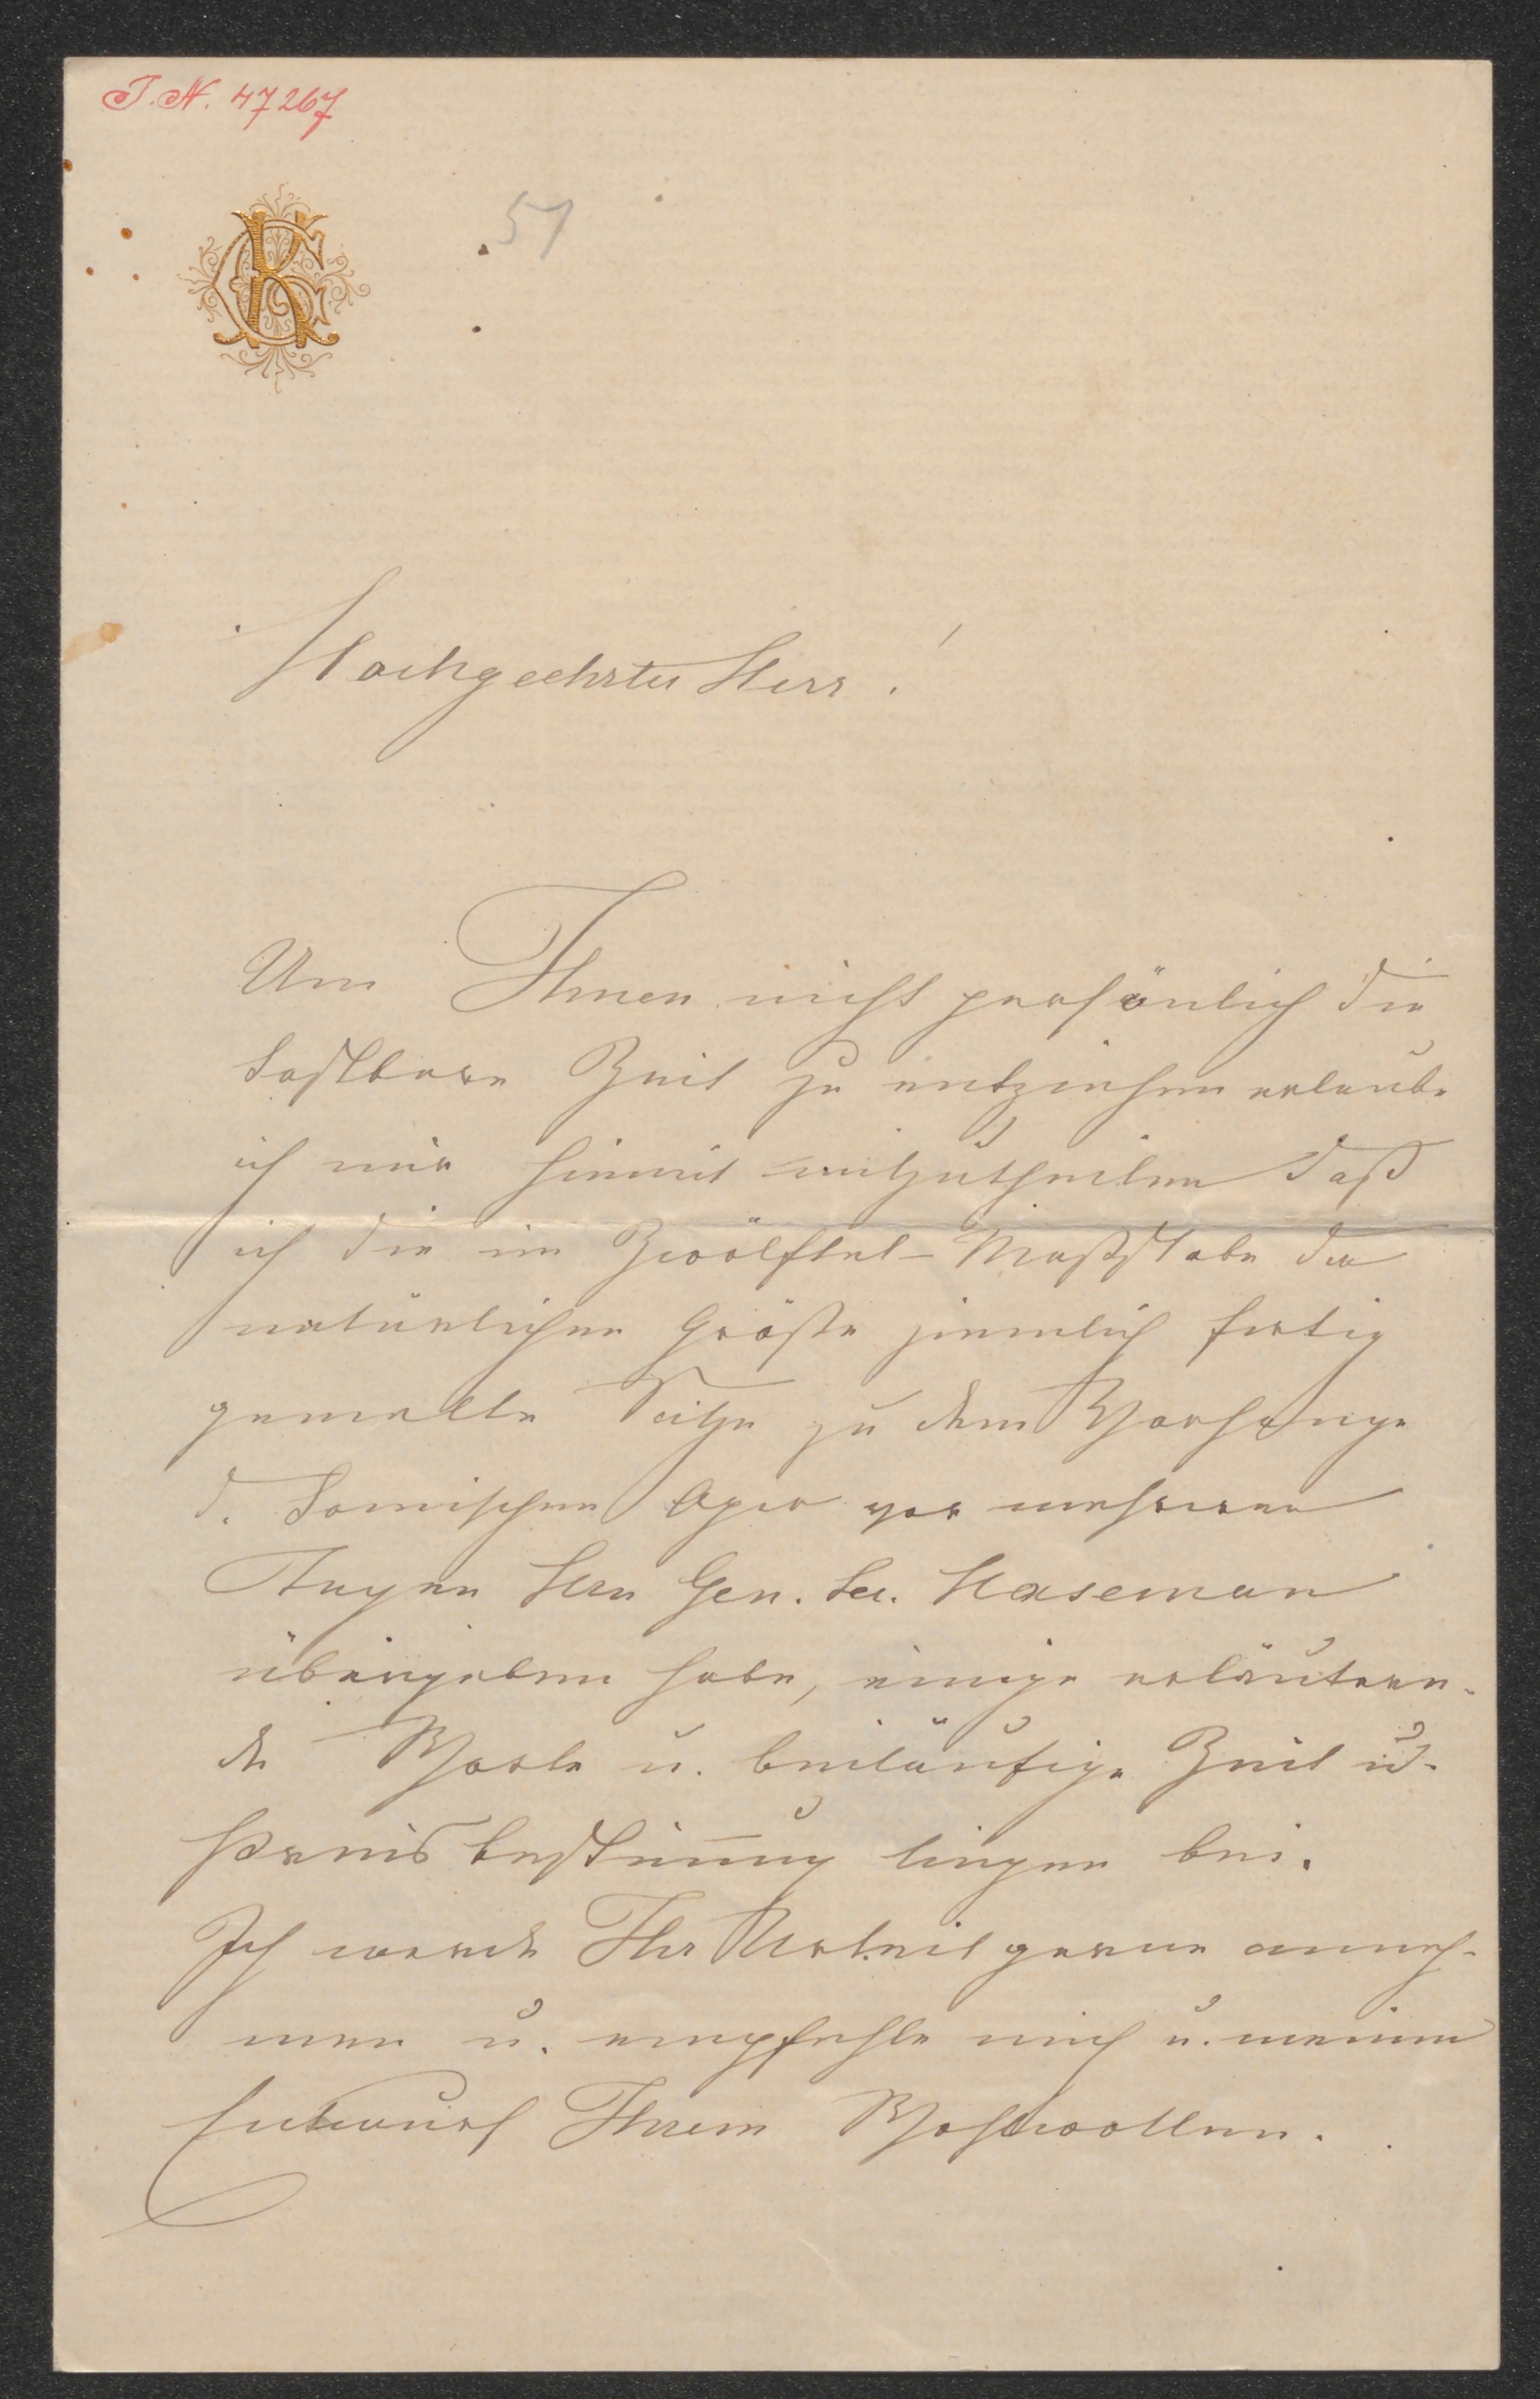 I.N. 47267
51
Hochgeehrter Herr!
Um Ihnen nicht persönlich die
kostbare Zeit zu entziehen erlaube
ich mir hiemit mitzutheilen daß
ich die im Zwölftel-Maßstabe der
natürlichen Größe ziemlich fertig
gemalte Skitze zu dem Vorhange
d. komischen Oper vor mehreren
Tagen Hrn Gen. Sec. Haseman
übergeben habe, einige erläutern-
de Worte u. beiläufige Zeit u.
Preisbestimung liegen bei.
Ich werde Ihr Urteil gerne anneh-
men u. empfehle mich u. meinen
Entwurf Ihrem Wohlwollen.